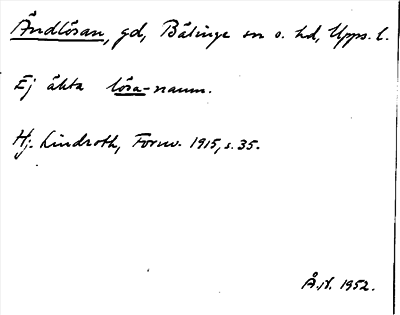 Ändlösan, gd, Bälinge sn o. hd, Upps. l.
Ej äkta lösa-namn.
Hj. Lindroth, Fornv. 1915, s. 35.
Å.N. 1952.